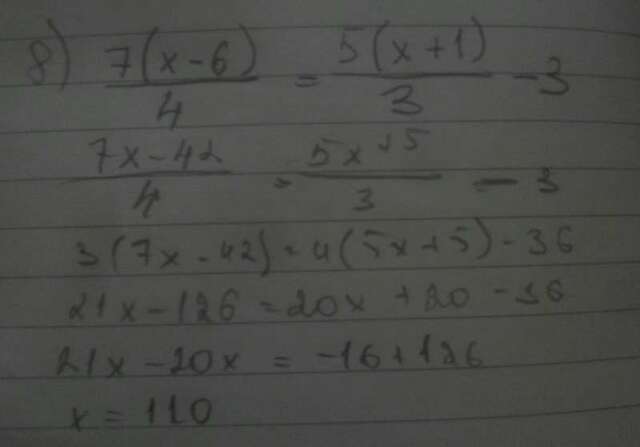 8) 7(x-6)/4 = 5(x+1)/3 - 3
7x-42/4 = 5x+5/3 - 3
3(7x-42) = 4(5x+5) - 36
21x-126 = 20x+20-36
21x-20x = -16+126
x = 110